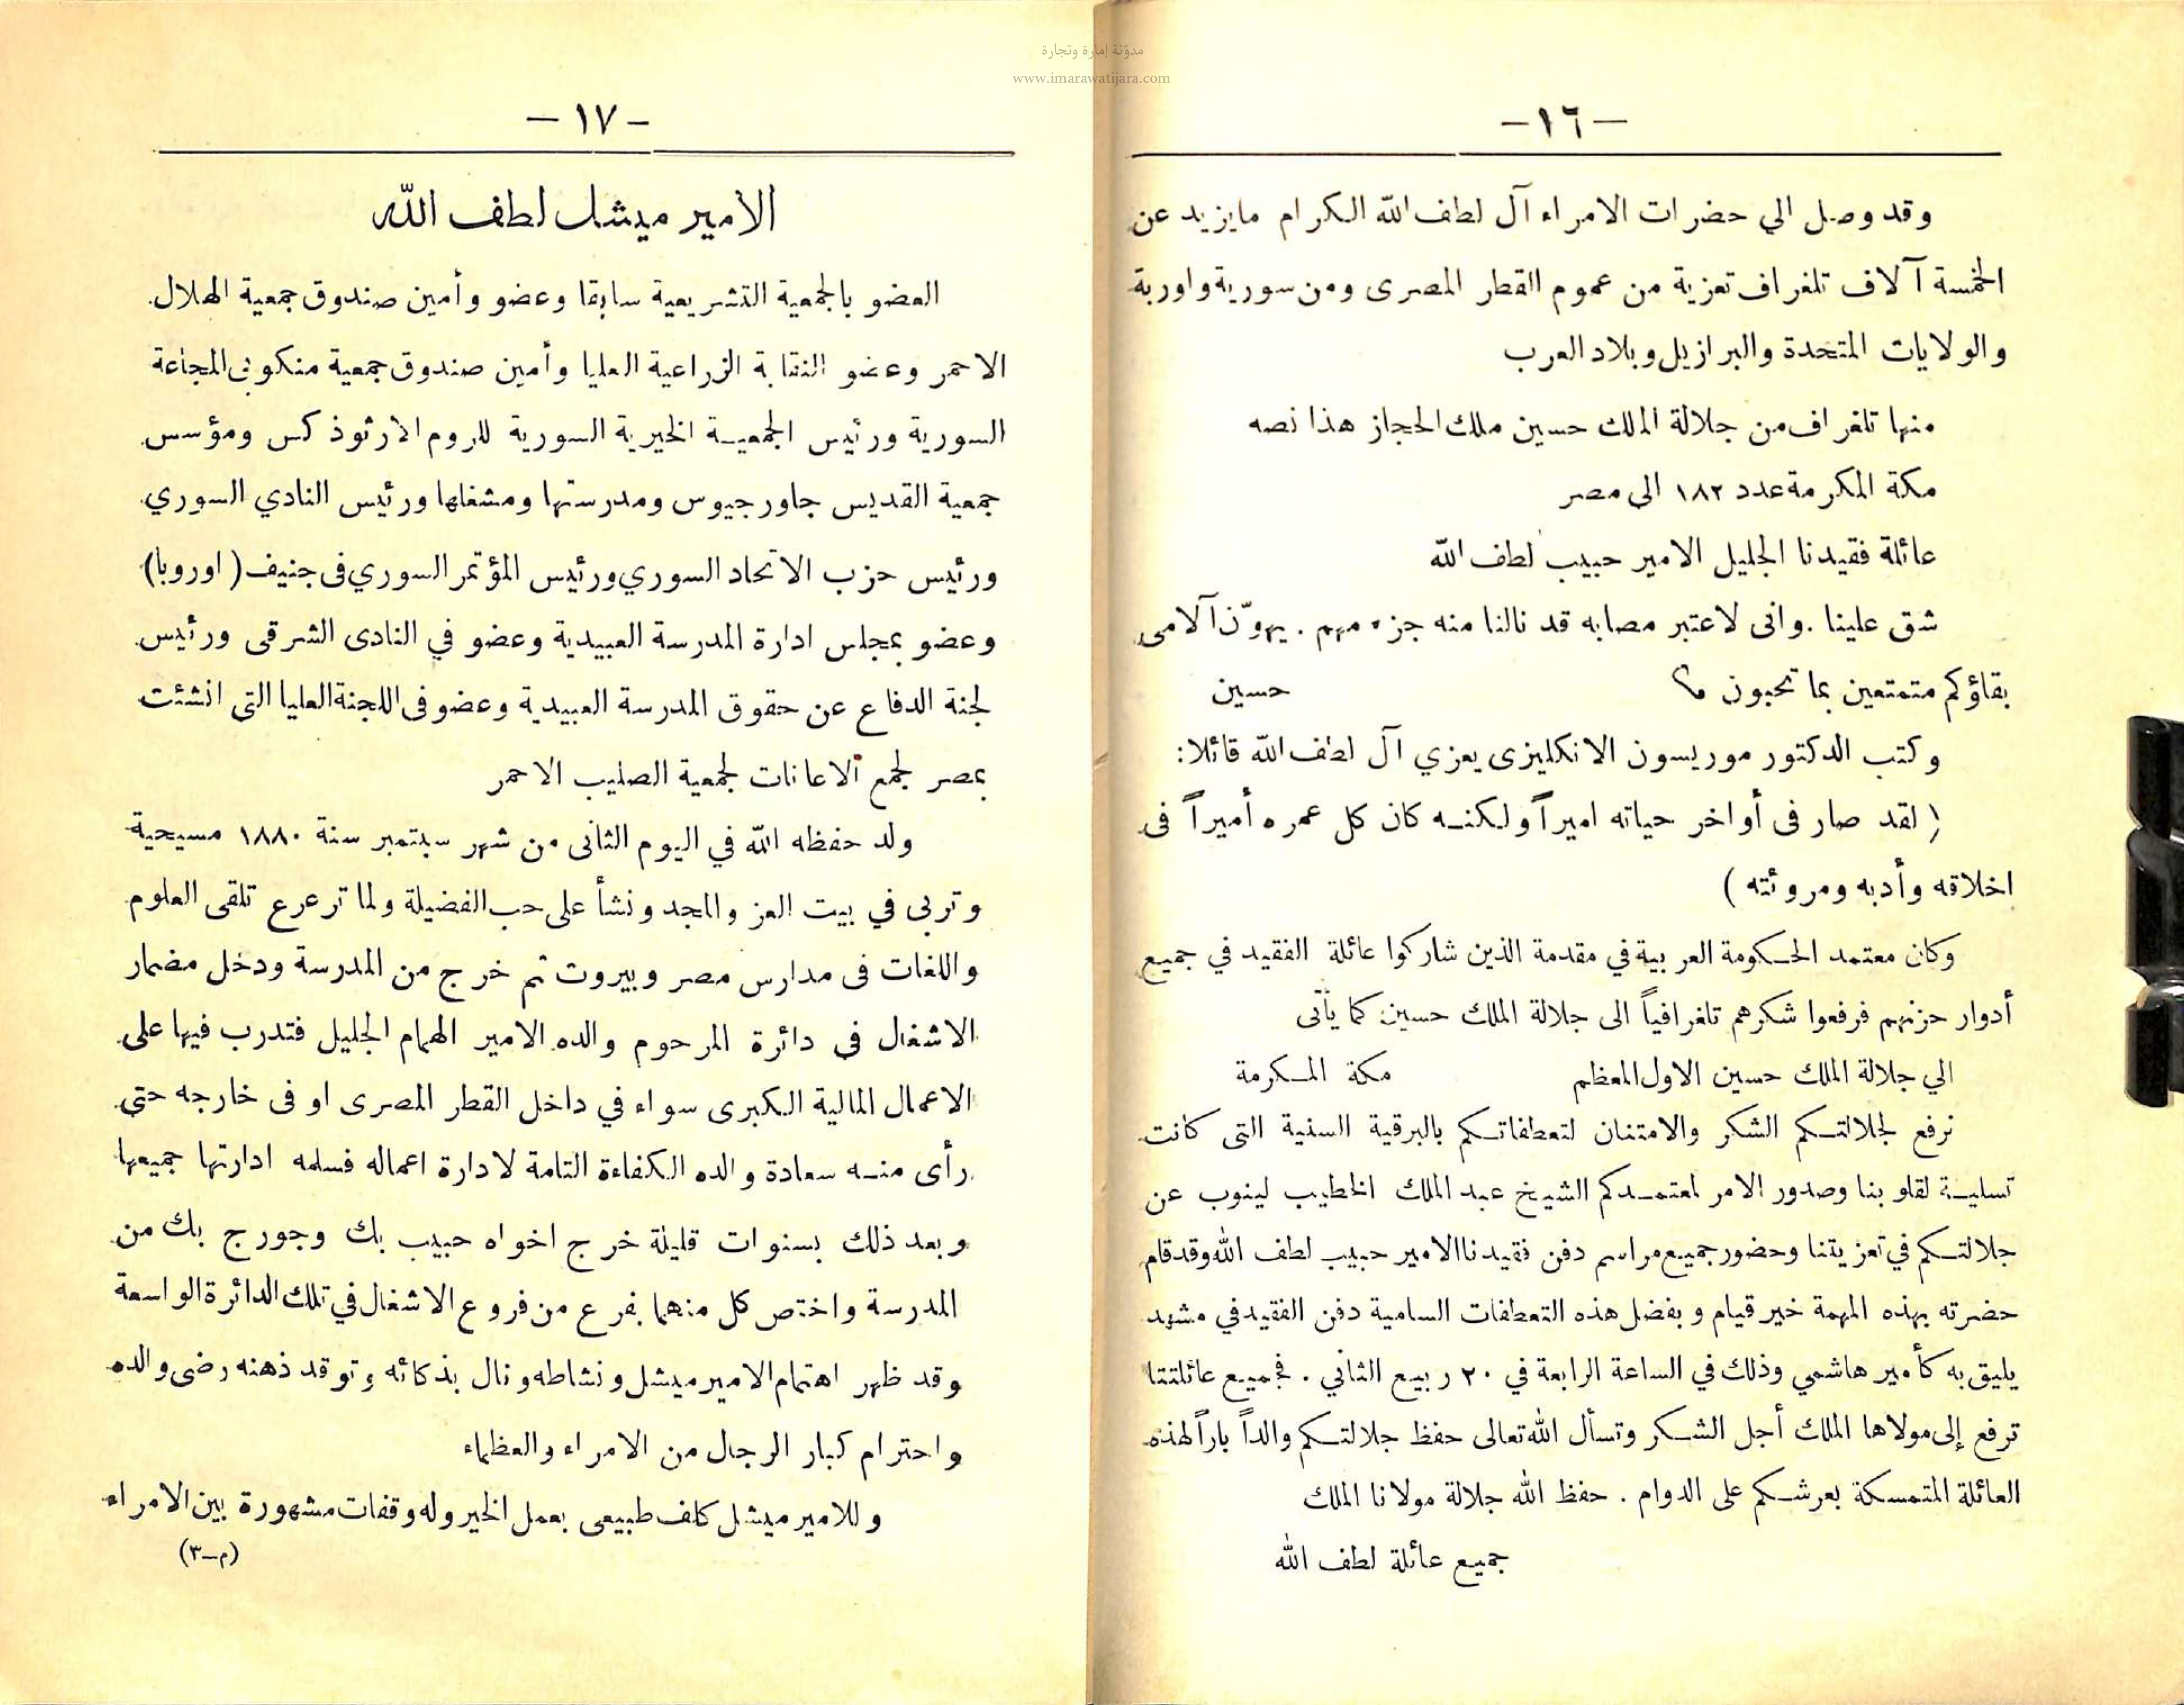 مدوّنة إمارة وتجارة
www.imarawatijara.com
—١٦—
وقد وصل الي حضرات الامراء آل لطف الله الكرام مايزيد عن
الخمسة آلاف تلغراف تعزية من عموم القطر المصرى ومن سورية واوربة
والولايات المتحدة والبرازيل وبلاد العرب
منها تلغراف من جلالة الملك حسين ملك الحجاز هذا نصه
مكة المكرمة عدد ١٨٢ الى مصر
عائلة فقيدنا الجليل الامير حبيب لطف الله
شق علينا . وانى لاعتبر مصابه قد نالنا منه جزء مهم . يهوّن آلامى
بقاؤكم متمتعين بما تحبون حسين
وكتب الدكتور موريسون الانكليزى يعزي آل لطف الله قائلا:
( لقد صار فى أواخر حياته اميراً ولكنه كان كل عمره أميراً فى
اخلاقه وأدبه ومروئته )
وكان معتمد الحكومة العربية في مقدمة الذين شاركوا عائلة الفقيد في جميع
أدوار حزنهم فرفعوا شكرهم تلغرافياً الى جلالة الملك حسين كما يأتى
الي جلالة الملك حسين الاول المعظم مكة المكرمة
نرفع لجلالتكم الشكر والامتنان لتعطفاتكم بالبرقية السنية التى كانت
تسلية لقلوبنا وصدور الامر لمعتمدكم الشيخ عبد الملك الخطيب لينوب عن
جلالتكم في تعزيتنا وحضور جميع مراسم دفن فقيدنا الامير حبيب لطف الله وقد قام
حضرته بهذه المهمة خير قيام وبفضل هذه التعطفات السامية دفن الفقيد في مشهد
يليق به كأمير هاشمي وذلك في الساعة الرابعة في ٢٠ ربيع الثاني . فجميع عائلتنا
ترفع إلى مولاها الملك أجل الشكر وتسأل الله تعالى حفظ جلالتكم والداً باراً لهذه
العائلة المتمسكة بعرشكم على الدوام . حفظ الله جلالة مولانا الملك
جميع عائلة لطف الله
— ١٧ —
الامير ميشل لطف الله
العضو بالجمعية التشريعية سابقا وعضو وأمين صندوق جمعية الهلال
الاحمر وعضو النقابة الزراعية العليا وأمين صندوق جمعية منكوبى المجاعة
السورية ورئيس الجمعية الخيرية السورية للروم الارثوذكس ومؤسس
جمعية القديس جاورجيوس ومدرستها ومشغلها ورئيس النادي السوري
ورئيس حزب الاتحاد السوري ورئيس المؤتمر السوري فى جنيف ( اوروبا )
وعضو بمجلس ادارة المدرسة العبيدية وعضو في النادى الشرقى ورئيس
لجنة الدفاع عن حقوق المدرسة العبيدية وعضو فى اللجنة العليا التى انشئت
بمصر لجمع الاعانات لجمعية الصليب الاحمر
ولد حفظه الله في اليوم الثانى من شهر سبتمبر سنة ١٨٨٠ مسيحية
وتربى في بيت العز والمجد ونشأ على حب الفضيلة ولما ترعرع تلقى العلوم
واللغات فى مدارس مصر وبيروت ثم خرج من المدرسة ودخل مضمار
الاشغال فى دائرة المرحوم والده الامير الهمام الجليل فتدرب فيها على
الاعمال المالية الكبرى سواء في داخل القطر المصرى او فى خارجه حتى
رأى منه سعادة والده الكفاءة التامة لادارة اعماله فسلمه ادارتها جميعها
وبعد ذلك بسنوات قليلة خرج اخواه حبيب بك وجورج بك من
المدرسة واختص كل منهما بفرع من فروع الاشغال في تلك الدائرة الواسعة
وقد ظهر اهتمام الامير ميشل ونشاطه ونال بذكائه وتوقد ذهنه رضى والده
واحترام كبار الرجال من الامراء والعظماء
وللامير ميشل كلف طبيعى بعمل الخير وله وقفات مشهورة بين الامراء
(م–٣)